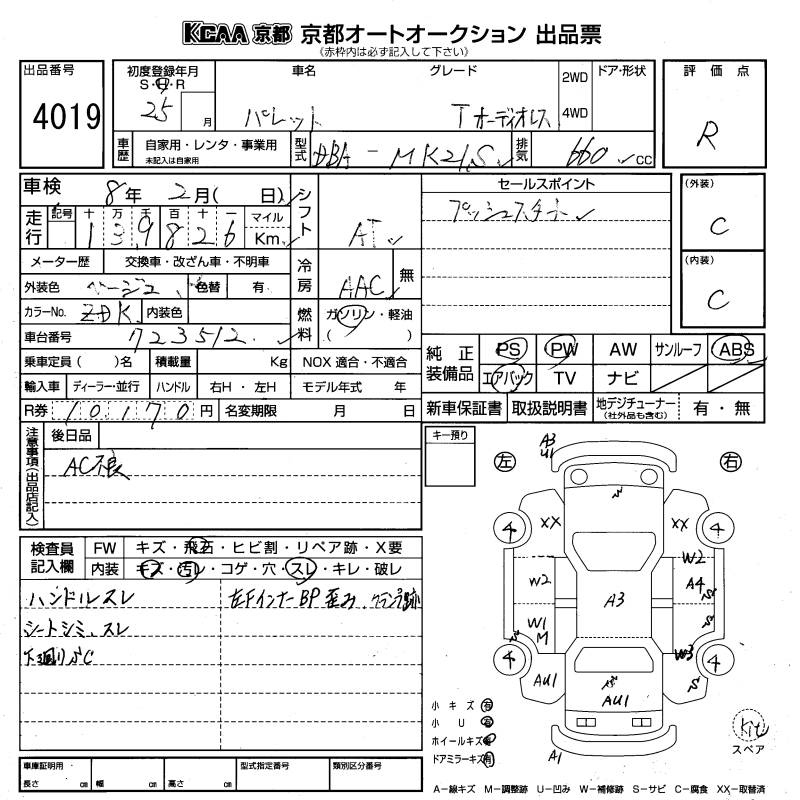 KCAA 京都 京都オートオークション 出品票
(赤枠内は必ず記入して下さい)
出品番号 初度登録年月 車名 グレード 2WD ドア・形状 評価点
4019 S・H・R 25 月 パレット T オーディオレス 4WD R
車歴 自家用・レンタ・事業用 未記入は自家用 型式 DBA-MK21S 排気 660 cc
車検 8年 2月( 日) シフト AT セールスポイント (外装)
走行 記号 十 万 千 百 十 一 マイル プッシュスタート C
139826 Km
メーター歴 交換車・改ざん車・不明車 冷房 AAC 無 (内装)
外装色 ベージュ 色替 有 C
カラーNo. ZDK 内装色 燃料 ガソリン・軽油
車台番号 723512 ( )
乗車定員( )名 積載量 Kg NOX 適合・不適合 純正装備品 PS PW AW サンルーフ ABS
輸入車 ディーラー・並行 ハンドル 右H・左H モデル年式 年 エアバック TV ナビ
R券 10170円 名変期限 月 日 新車保証書 取扱説明書 地デジチューナー (社外品も含む) 有・無
注意事項(出品店記入) 後日品 キー預り
AC不良 A3 U1
左 右
検査員記入欄 FW キズ・飛石・ヒビ割・リペア跡・X要
内装 キズ・汚レ・コゲ・穴・スレ・キレ・破レ
ハンドルスレ 左Fインナー BP 歪み、クランプ跡
シートシミ、スレ
下廻りサビC
4 XX XX 4
W2
W2 A4
A3
W1 M
W3
4 4
AU1 AU1
小キズ 有
小U 有
ホイールキズ 有
ドアミラーキズ 有
Kit
スペア
A1
車庫証明用 型式指定番号 類別区分番号
長さ cm 幅 cm 高さ cm
A-線キズ M-調整跡 U-凹み W-補修跡 S-サビ C-腐食 XX-取替済